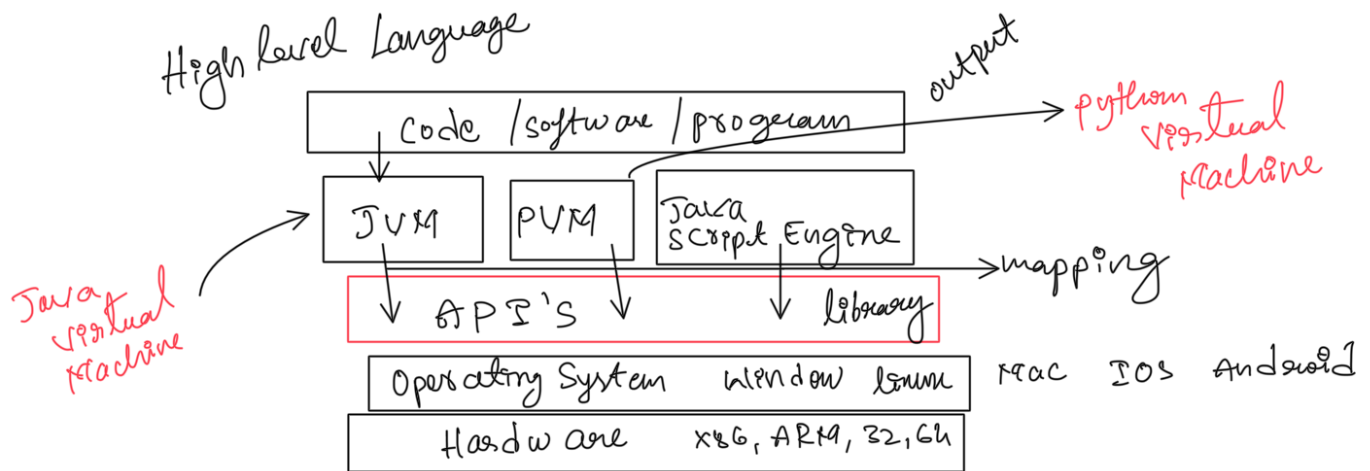 High level Language
output
code / software / program
python
virtual
Machine
JVM
PVM
Java
Script Engine
mapping
Java
virtual
Machine
API'S library
Operating System Window linux Mac IOS Android
Hardware X86, ARM, 32, 64